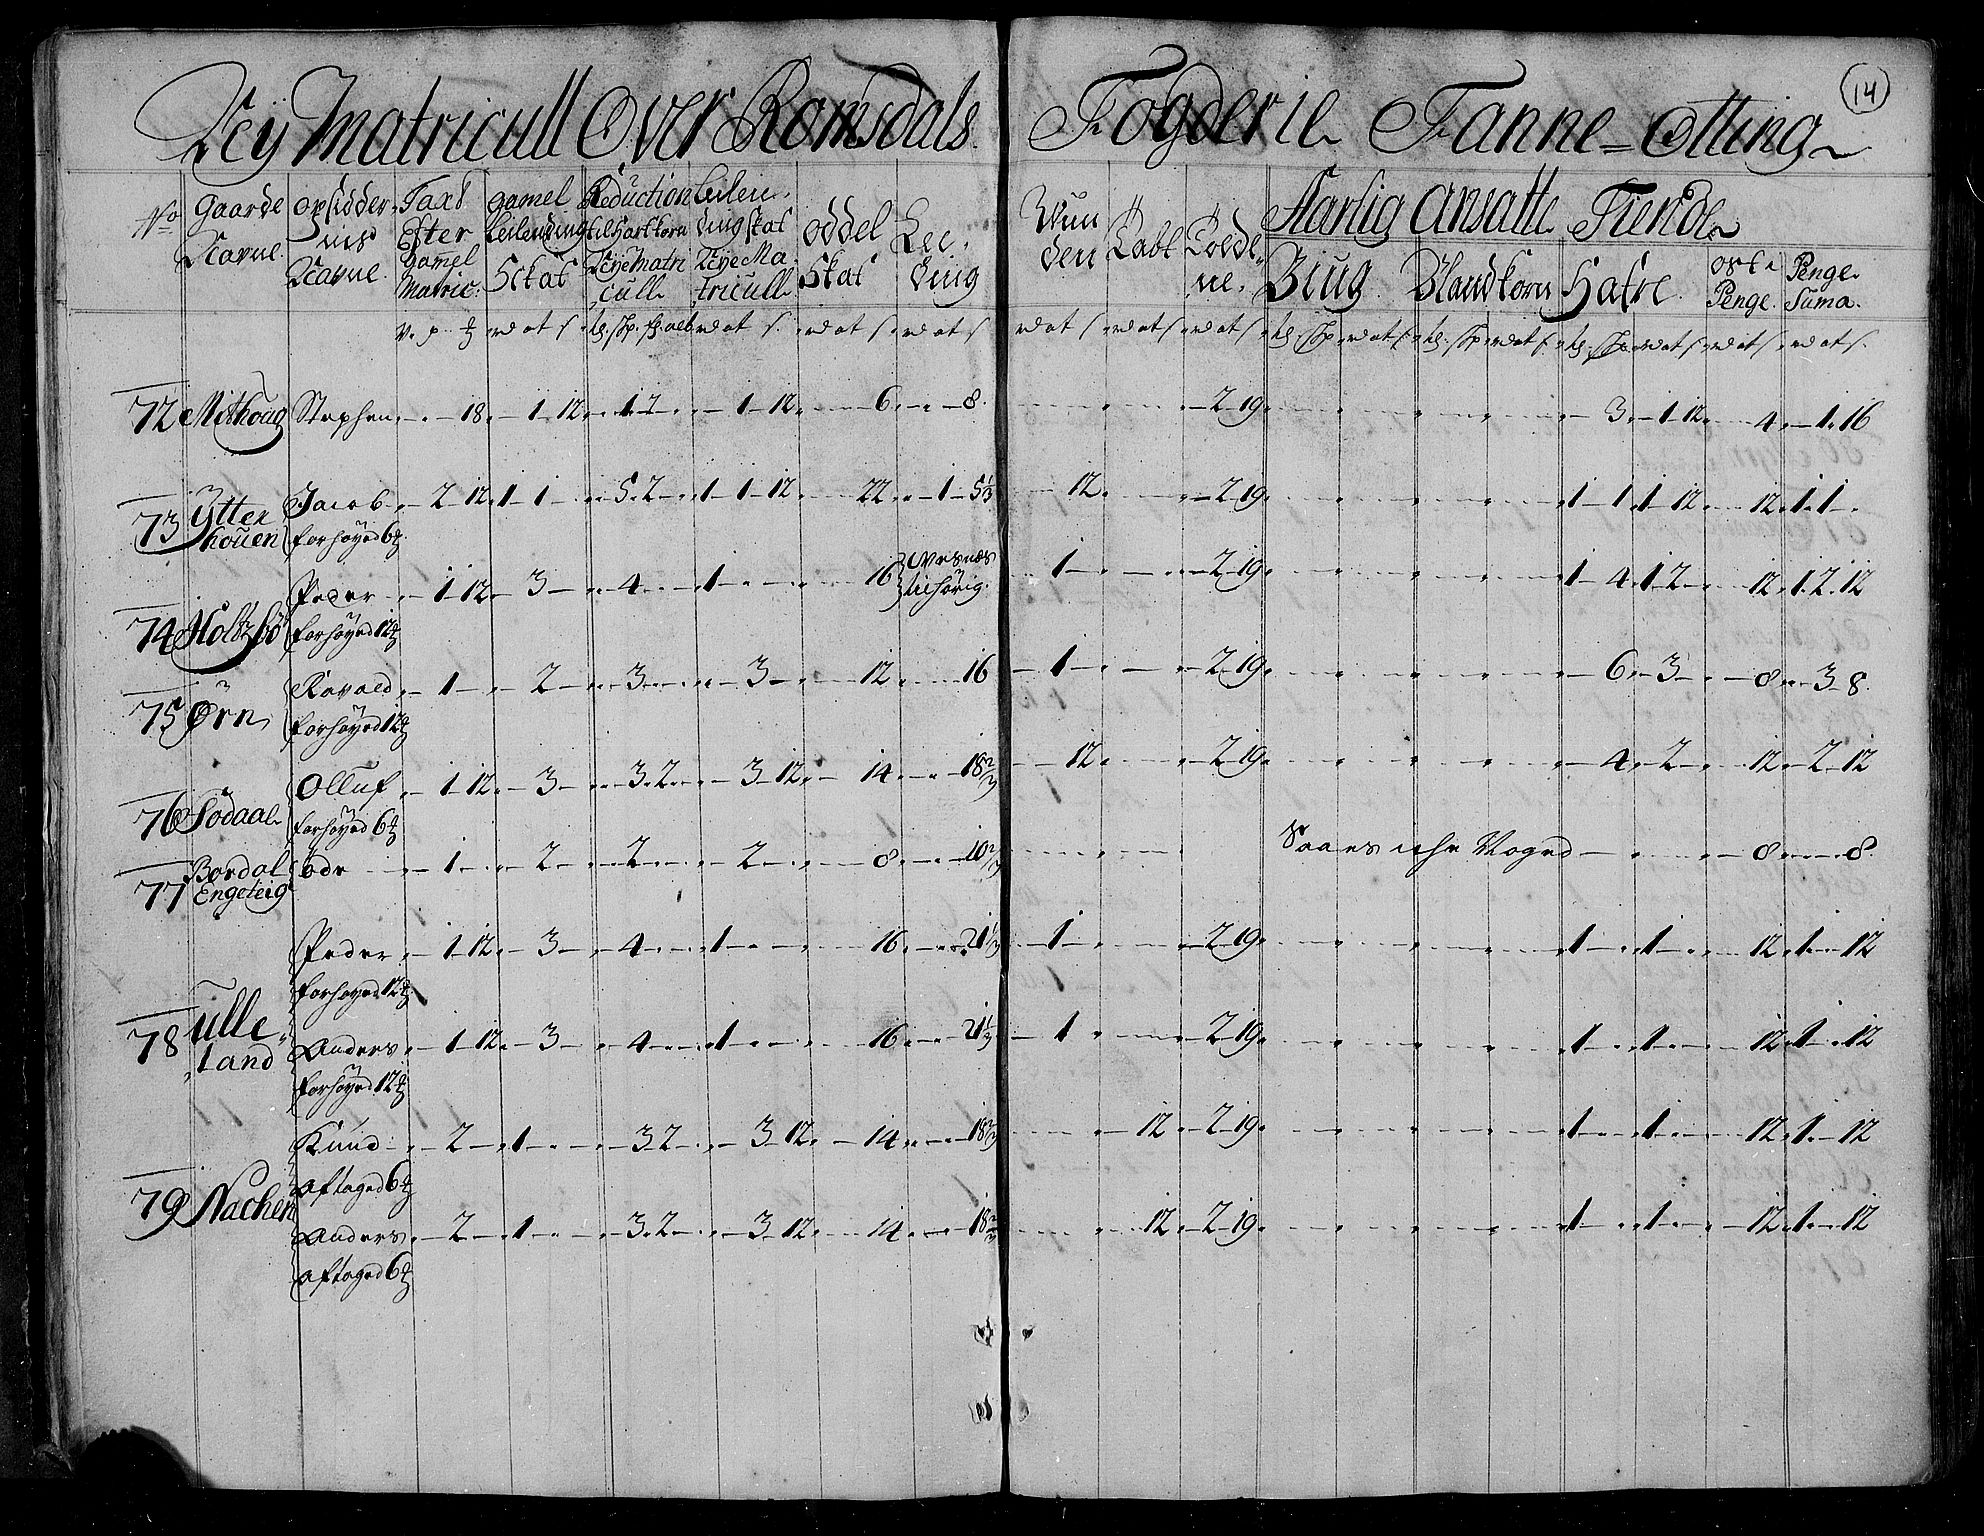 Neÿ Matricull Over Romsdals Fogderie Fanne-Otting
14
No Gaarde Navne opsidder nis Navne Taxt Efter gamel Matric: gamel Leilending Skat Reduction til Hartkorn Neye Matri cull Leilen ding skat Neye Ma triculls oddel Skat Lee ding Wun den Labt Aarlig Ansatte Tiende Biug Blandkorn Hafre Penge Penge Suma
72 Mithoug Stephen 18 1 12 1 2 1 12 6 8 2 19 3 1 12 4 1 16
73 Ytter houen Jacob 2 12 1 1 5 2 1 1 12 22 1 5 1/3 12 2 19 1 1 1 12 12 1 1
forhøyed 6
74 Holtzbø Peder 1 12 3 4 1 16 1 2 19 1 4 1 2 12 1 2 12
forhøyed 12
75 Ørn 1 2 3 3 12 16 1 2 19 6 3 8 3 8
forhøyed 12
76 Sødaal Olluf 1 12 3 3 2 3 12 14 18 2/3 12 2 19 4 2 12 2 12
forhøyed 6
77 Bordal Engeteig öde 1 2 2 2 8 10 2/3 8 8
78 Ulle land Peder 1 12 3 4 1 16 21 1/3 1 2 19 1 1 12 1 12
forhøyed 12
Anders 1 12 3 4 1 16 21 1/3 1 2 19 1 1 12 1 12
forhøyed 12
79 Nachen Knud 2 1 3 2 3 12 14 18 2/3 12 2 19 1 1 12 1 12
aftaged 6
Anders 2 1 3 2 3 12 14 18 2/3 12 2 19 1 1 12 1 12
aftaged 6